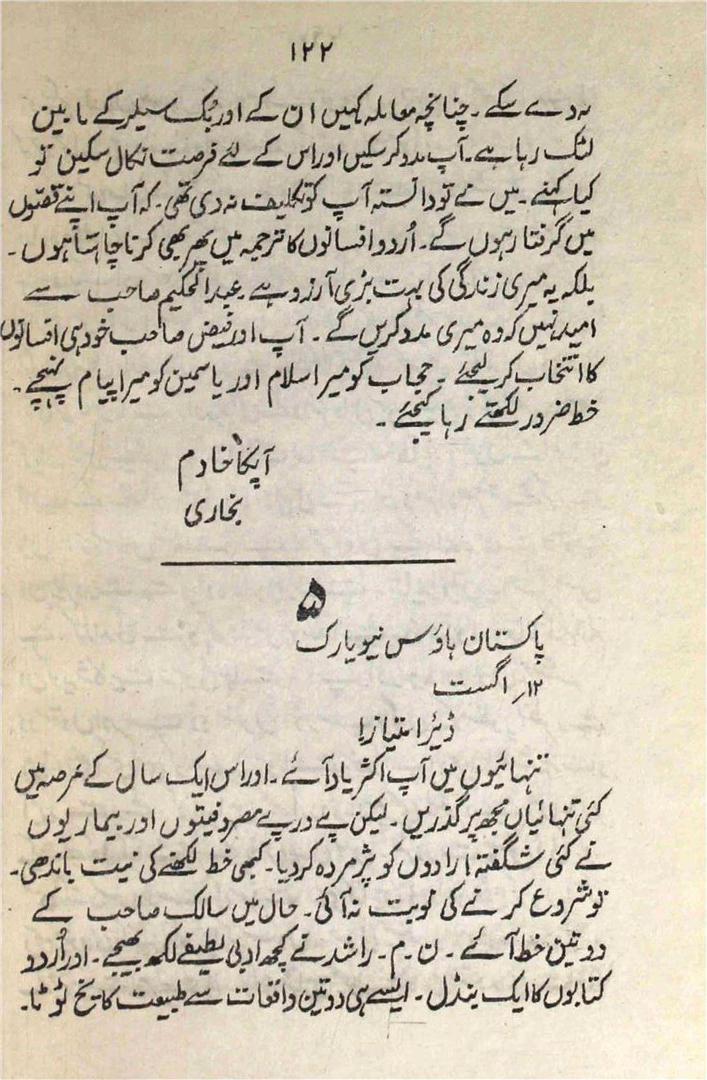 ۱۲۲
نہ دے سکے ۔ چنانچہ معاملہ کہیں ان کے اور بُک سیلر کے مابین
لٹک رہا ہے ۔ آپ مدد کر سکیں اور اس کے لئے فرصت نکال سکیں تو
کیا کہنے ۔ میں نے تو دانستہ آپ کو تکلیف نہ دی تھی ۔ کہ آپ اپنے قصّوں
میں گرفتار ہوں گے ۔ اُردو افسانوں کا ترجمہ میں پھر بھی کرنا چاہتا ہوں ۔
بلکہ یہ میری زندگی کی بہت بڑی آرزو ہے ۔ عبدالحکیم صاحب سے
امید نہیں کہ وہ میری مدد کریں گے ۔ آپ اور فیض صاحب خود ہی افسانوں
کا انتخاب کر لیجئے ۔ حجاب کو میرا سلام اور یاسمین کو میرا پیام پہنچے ۔
خط ضرور لکھتے رہا کیجئے ۔
آپکا خادم
بخاری
۵
پاکستان ہاؤس نیویارک
۱۲؍ اگست
ڈیرٔ امتیاز!
تنہائیوں میں آپ اکثر یاد آئے ۔ اور اس ایک سال کے عرصہ میں
کئی تنہائیاں مجھ پر گذریں ۔ لیکن پے در پے مصروفیتوں اور بیماریوں
نے کئی شگفتہ ارادوں کو پژمردہ کر دیا ۔ کبھی خط لکھنے کی نیت باندھی ۔
تو شروع کرنے کی نوبت نہ آئی ۔ حال میں سالک صاحب کے
دو تین خط آئے ۔ ن ۔ م ۔ راشد نے کچھ ادبی لطیفے لکھ بھیجے ۔ اور اُردو
کتابوں کا ایک بنڈل ۔ ایسے ہی دو تین واقعات سے طبیعت کا یخ ٹوٹا ۔